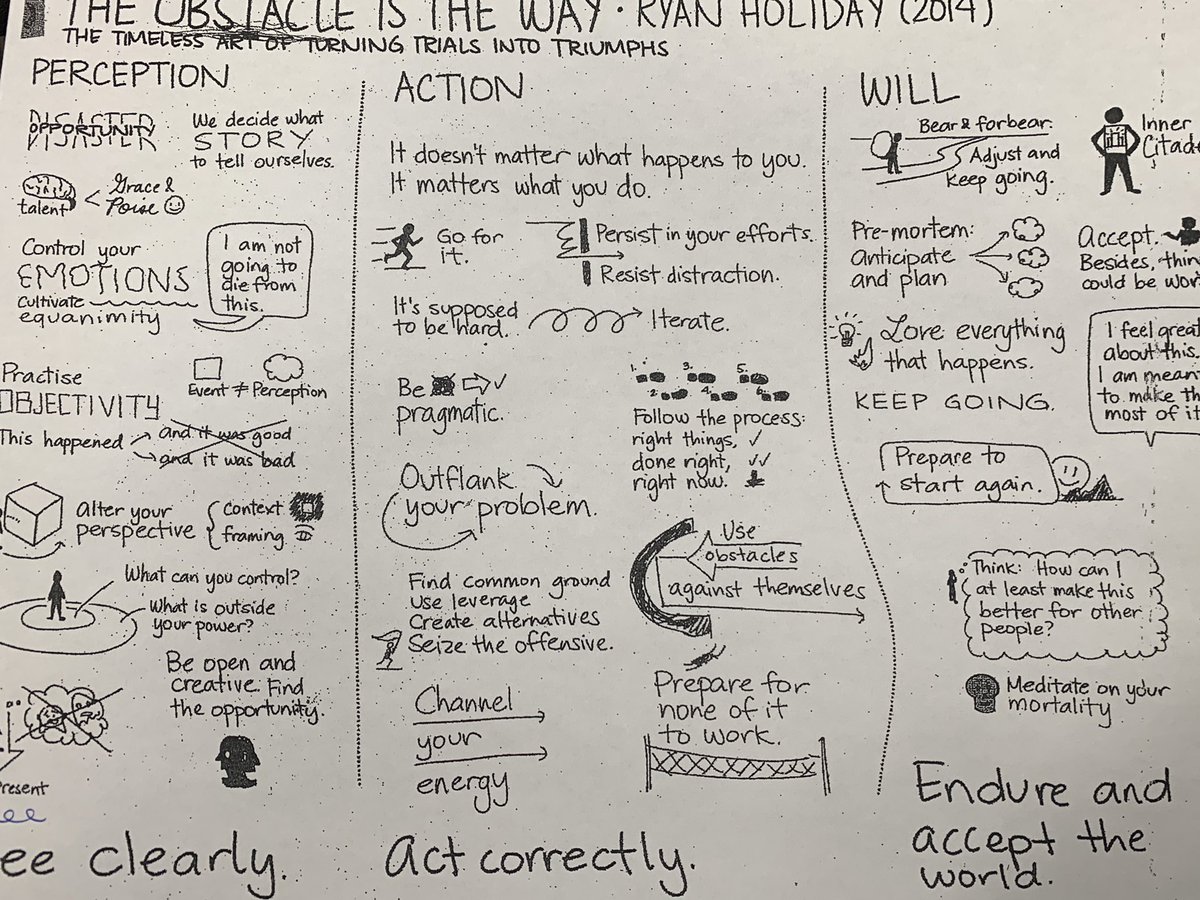 THE OBSTACLE IS THE WAY · RYAN HOLIDAY (2014)
THE TIMELESS ART OF TURNING TRIALS INTO TRIUMPHS
PERCEPTION
DISASTER
OPPORTUNITY
We decide what
STORY
to tell ourselves.
talent
Grace &
Poise
Control your
EMOTIONS
Cultivate
equanimity
I am not
going to
die from
this.
Practise
OBJECTIVITY
Event ≠ Perception
This happened
and it was good
and it was bad
alter your
perspective
context
framing
What can you control?
What is outside
your power?
Be open and
creative. Find
the opportunity.
resent
ee
ee clearly.
ACTION
It doesn't matter what happens to you.
It matters what you do.
Go for
it.
Persist in your efforts.
Resist distraction.
It's supposed
to be hard.
Iterate.
Be
pragmatic.
1. 3. 5.
2. 4. 6.
Follow the process:
right things,
done right,
right now.
Outflank
your problem.
Use
obstacles
against themselves
Find common ground
Use leverage
Create alternatives
Seize the offensive.
Channel
your
energy
Prepare for
none of it
to work.
Act correctly.
WILL
Bear & forbear.
Adjust and
keep going.
Inner
Citade
Pre-mortem:
anticipate
and plan
Accept.
Besides, thin
could be wor
Love everything
that happens.
KEEP GOING.
I feel great
about this.
I am mean
to make th
most of it
Prepare to
start again.
Think: How can I
at least make this
better for other
people?
Meditate on your
mortality
Endure and
accept the
world.